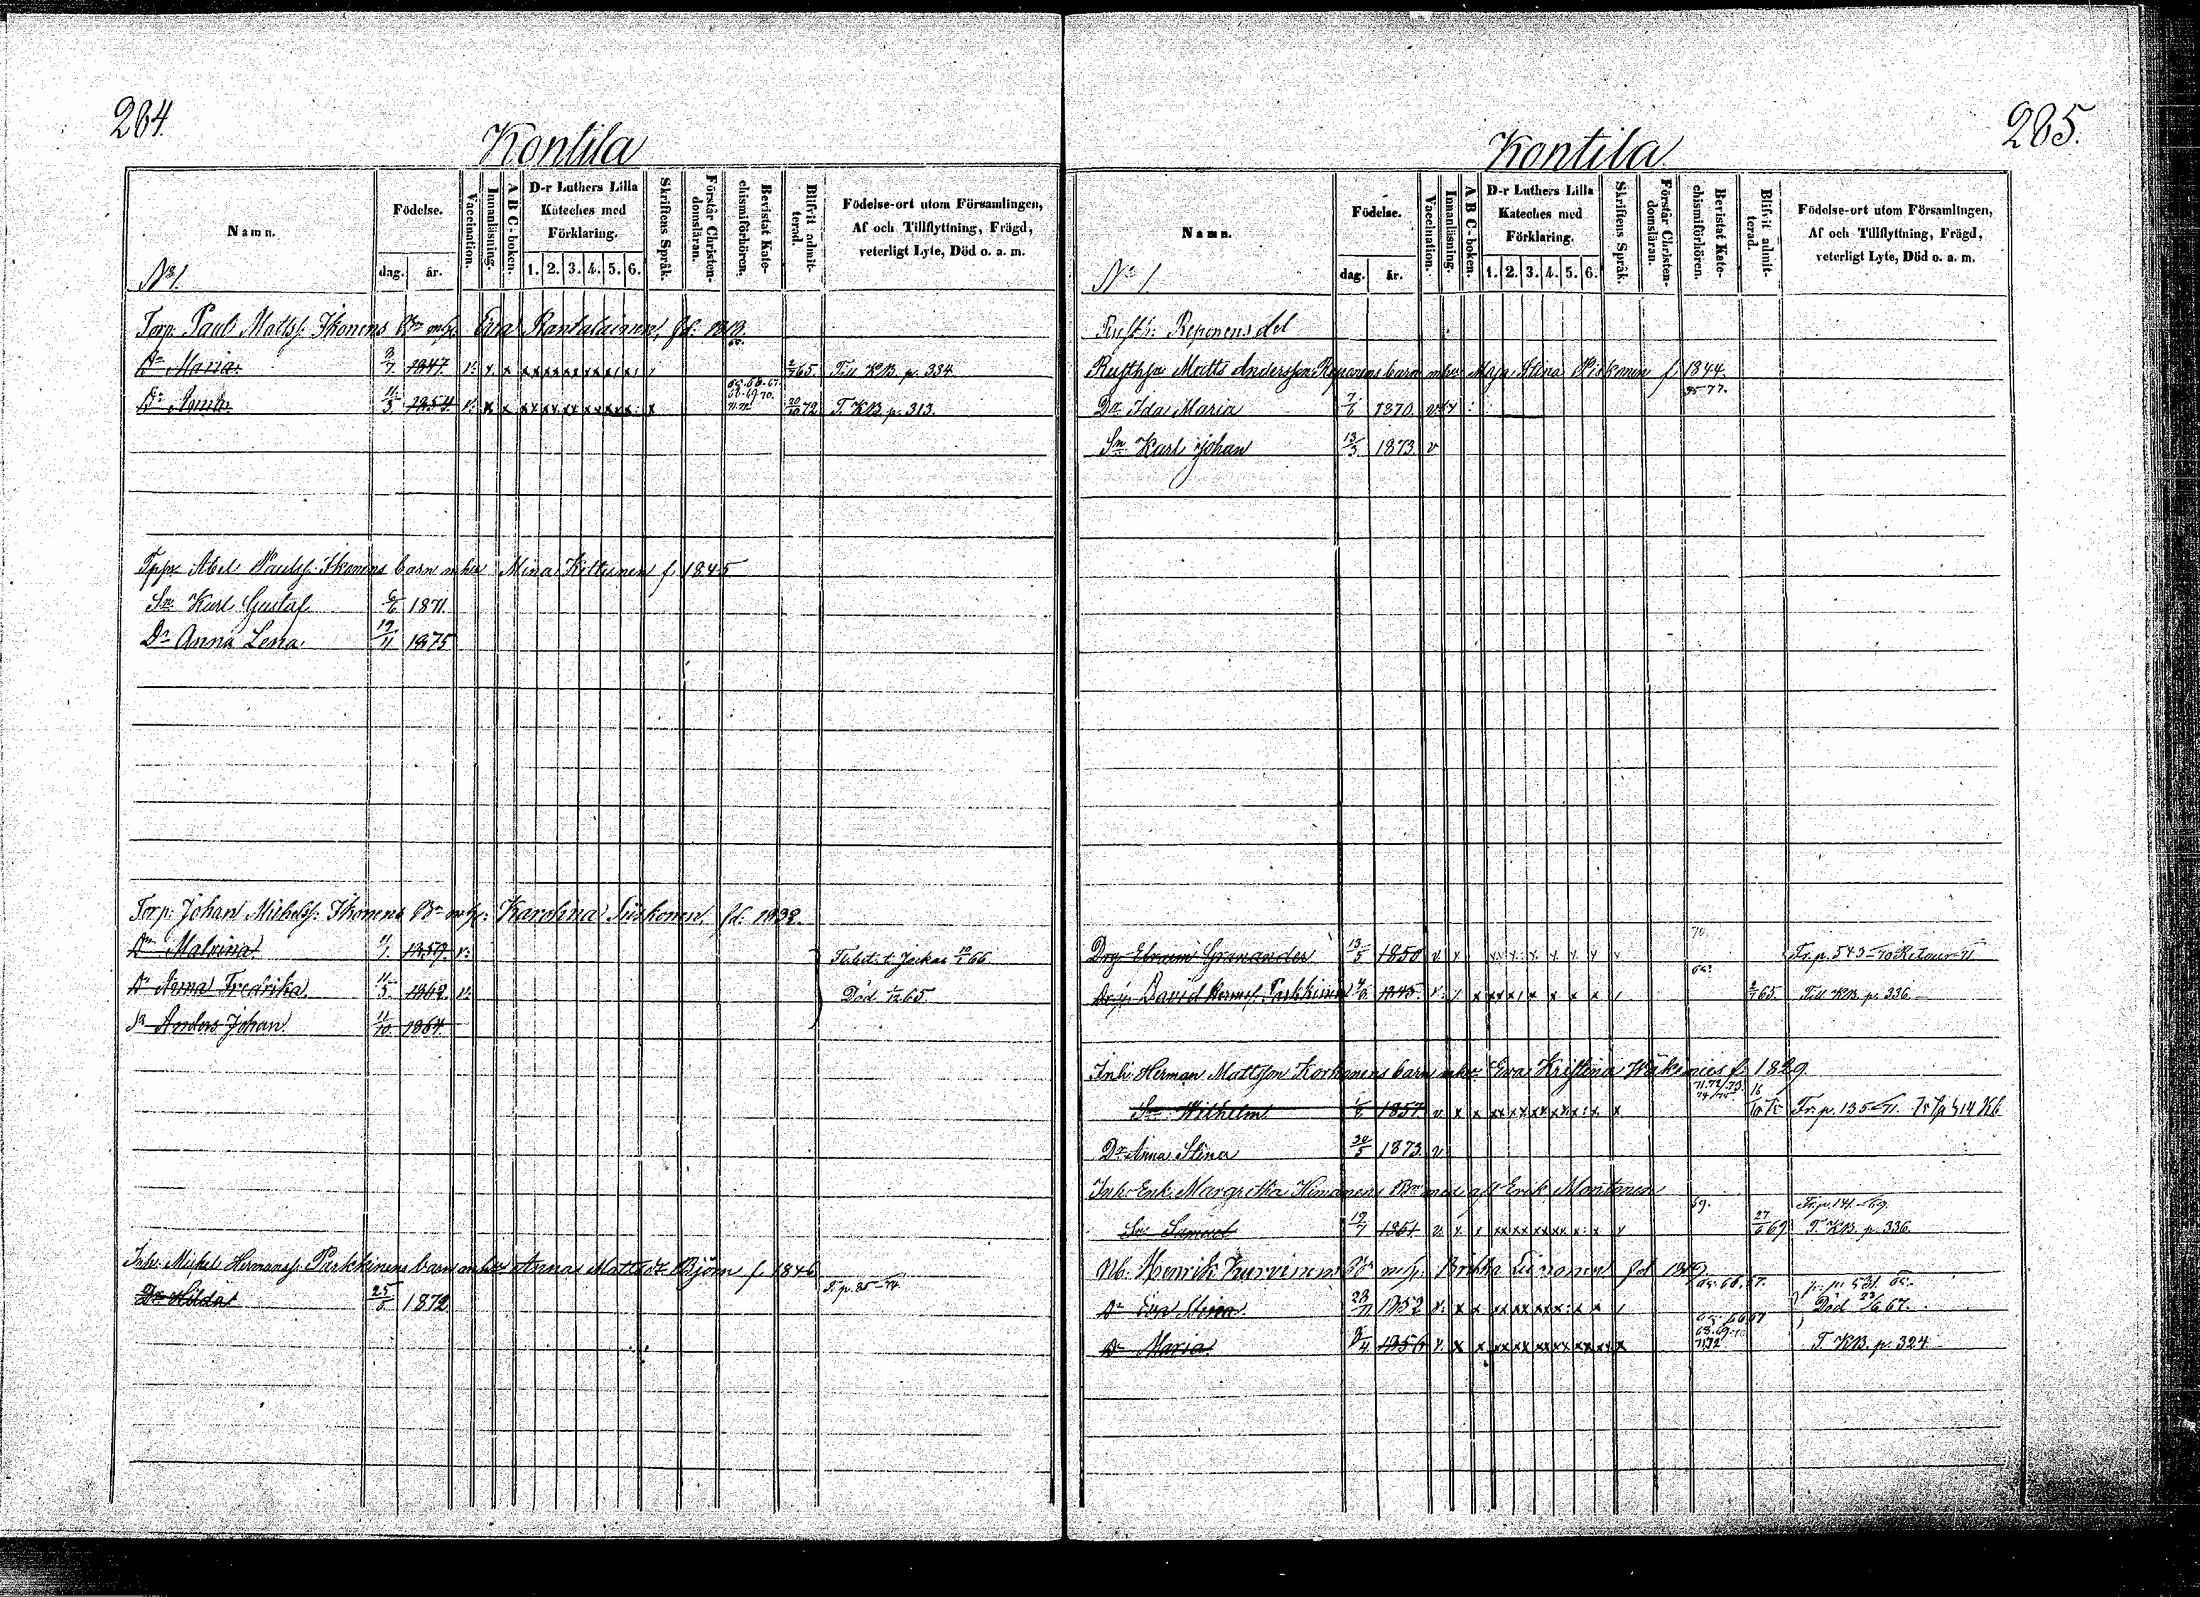 284.
Kontila
Namn.
Födelse.
dag. år.
Vaccination.
Innanläsning.
A B C-boken.
D-r Luthers Lilla Kateches med Förklaring.
1. 2. 3. 4. 5. 6.
Skriftens Språk.
Förstår Christendomsläran.
Bevistat Katechismiförhören.
Blifvit admitterad.
Födelse-ort utom Församlingen, Af och Tillflyttning, Frägd, veterligt Lyte, Död o. a. m.
No 1.
Torp. Paul Matts. Ikonens Bn mhu Eva Rantalainen, fd.
Dr Maria. 1847. v. 65. Till KB. p. 334
Dr 11/3 1854 v. 65.66.67. 68.69.70. 71.72. 20/10 72 T. KB. p. 313.
Abel Pauls. Ikonens barn mhu Mina Kettunen f. 1845
Sn Karl Gustaf 6/6 1871
Dr Anna Lena. 19/11 1875
Torp. Johan Michels. Ikonens Bn mhu: Karolina Siiskonen, fd. 1832.
Dr Malvina 1859. v. Till Jockas 66
Dr Anna Fredrika 11/5 1862 v. Död 65.
Sn Anders Johan 11/10 1864
Inh. Mikel Hermans. Parkkinens barn mhu Annas Mattsdtr Björn f. 1846
Dr Hilda 25/5 1872 T. p. 85-74
285.
Kontila
Namn.
Födelse.
dag. år.
Vaccination.
Innanläsning.
A B C-boken.
D-r Luthers Lilla Kateches med Förklaring.
1. 2. 3. 4. 5. 6.
Skriftens Språk.
Förstår Christendomsläran.
Bevistat Katechismiförhören.
Blifvit admitterad.
Födelse-ort utom Församlingen, Af och Tillflyttning, Frägd, veterligt Lyte, Död o. a. m.
No 1.
Rusth: Reponens del
Matts Andersson Reponens barn mhu Maja Stina Piskonen f. 1844.
Dr Ida Maria 7/6 1870. v 77.
Sn Karl Johan 13/3 1873 v
Drg Granander 13/5 1850 v 70 Fr. p. 543-70 Retour 71
David Parkkinen 1845. v. 65. 65. Till KB. p. 336
Inh. Herman Mattsson Korhonens barn mhu Eva Kristina f. 1829
Sn Wilhelm 1/6 1857 v 71.72/73 74/75 Fr. p. 135-71.
Dr Anna Stina 30/5 1873 v
Inh. Enk. Margretha Himanens Bn med afl Erik Montonen
Sn Samuel 19/7 1851 v 69. 27/6 69 Fr. p. 141-69. T. KB. p. 336
Henrik Kurvinens Bn mhu:
Dr Eva Stina 28/11 1852 v. 65.66.67. Död 23/6 67.
Dr Maria 1856 v. 65.66.67 68.69.70 71.72 T. KB. p. 324